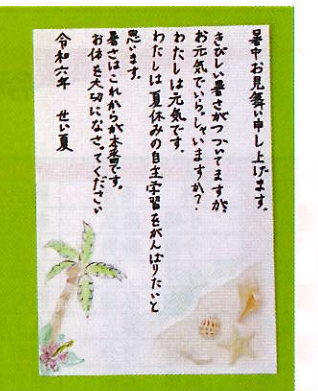 暑中お見舞い申し上げます。
きびしい暑さがつづいてますが、
お元気でいらっしゃいますか?
わたしは元気です。
わたしは夏休みの自主学習をがんばりたいと
思います。
暑さはこれからが本番です。
お体を大切になさってください
令和六年 せい夏